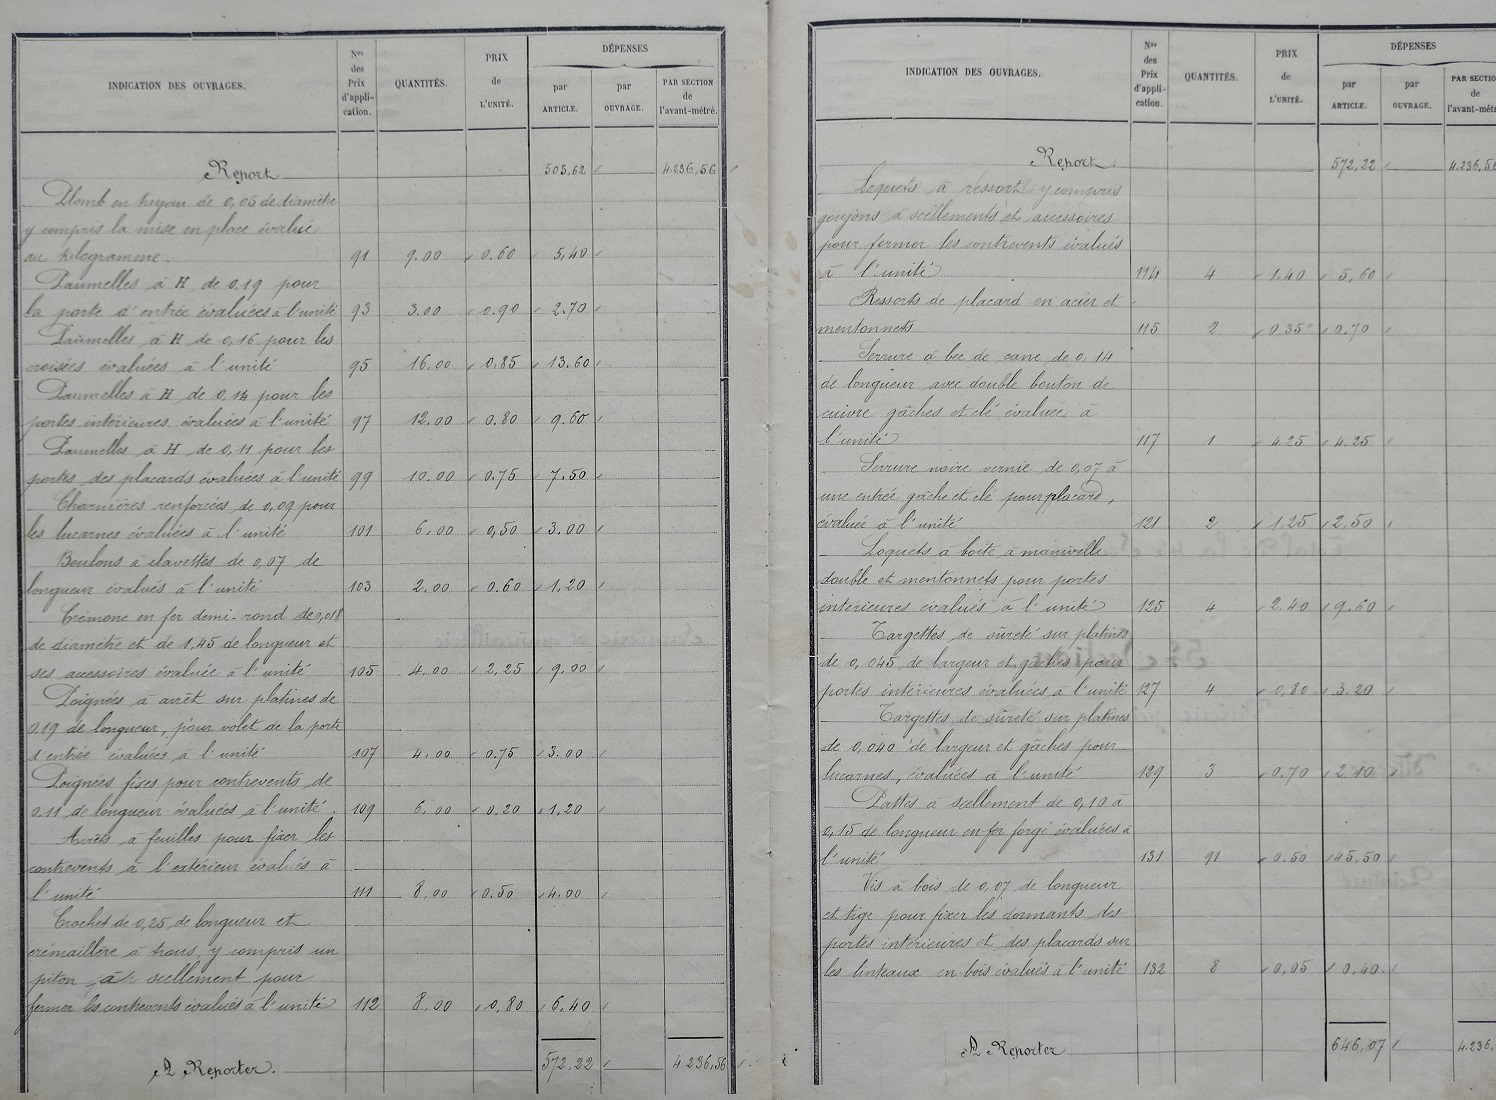 INDICATION DES OUVRAGES. Nos des Prix d'appli-cation. QUANTITÉS. PRIX de L'UNITÉ. DÉPENSES par ARTICLE. par OUVRAGE. PAR SECTION de l'avant-métré.
Report 505,62 4.236,56
Plomb en tuyau de 0,05 de diamètre
y compris la mise en place évalué
au kilogramme. 91 9.00 0.60 5,40
Paumelles à H de 0,19 pour
la porte d'entrée évaluées à l'unité 93 3.00 0.90 2.70
Paumelles à H de 0,16 pour les
croisées évaluées à l'unité 95 16.00 0.85 13.60
Paumelles à H de 0,14 pour les
portes intérieures évaluées à l'unité 97 12.00 0.80 9.60
Paumelles à H de 0,11 pour les
portes des placards évaluées à l'unité 99 10.00 0.75 7.50
Charnières renforcées de 0,09 pour
les lucarnes évaluées à l'unité 101 6.00 0,50 3.00
Boulons à clavettes de 0,07 de
longueur évalués à l'unité 103 2.00 0.60 1.20
Crémone en fer demi-rond de 0,018
de diamètre et de 1,45 de longueur et
ses accessoires évaluée à l'unité 105 4.00 2.25 9.00
Poignées à arrêt sur platines de
0.19 de longueur, pour volet de la porte
d'entrée évaluées à l'unité 107 4.00 0.75 3.00
Poignées fixes pour contrevents de
0.11 de longueur évaluées à l'unité. 109 6.00 0.20 1.20
Arrêts à feuilles pour fixer les
contrevents à l'extérieur évalués à
l'unité 111 8.00 0.50 4.00
Crochet de 0,25 de longueur et
crémaillère à trous, y compris un
piton à scellement pour
fermer les contrevents évalués à l'unité 112 8.00 0,80 6.40
A Reporter. 572,22 4.236,56
INDICATION DES OUVRAGES. Nos des Prix d'appli-cation. QUANTITÉS. PRIX de L'UNITÉ. DÉPENSES par ARTICLE. par OUVRAGE. PAR SECTION de l'avant-métré
Report 572,22 4.236,56
Loquets à ressort y compris
goujons à scellements et accessoires
pour fermer les contrevents évalués
à l'unité 114 4 1.40 5,60
Ressorts de placard en acier et
mentonnets 115 2 0.35 0.70
Serrure à bec de cane de 0.14
de longueur avec double bouton de
cuivre gâches et clé évaluée à
l'unité 117 1 4.25 4.25
Serrure noire vernie de 0,07 à
une entrée gâche et clé pour placard,
évaluée à l'unité 121 2 1.25 2.50
Loquets à boite à manivelle
double et mentonnets pour portes
intérieures évalués à l'unité 125 4 2.40 9.60
Targettes de sûreté sur platines
de 0,045 de largeur et gâches pour
portes intérieures évaluées à l'unité 127 4 0,80 3.20
Targettes de sûreté sur platines
de 0,040 de largeur et gâches pour
lucarnes, évaluées à l'unité 129 3 0.70 2.10
Pattes à scellement de 0,10 à
0,15 de longueur en fer forgé évaluées à
l'unité 131 91 0.50 45,50
Vis à bois de 0,07 de longueur
et tige pour fixer les dormants des
portes intérieures et des placards sur
les linteaux en bois évalués à l'unité 132 8 0,05 0.40
A Reporter 646,07 4.236,